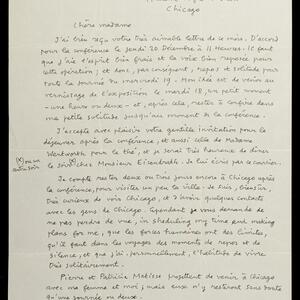 Chicago
Chère madame
J'ai bien reçu votre très aimable lettre de ce mois. D'accord
pour la conférence le jeudi 20 Décembre à 11 Heures. Il faut
que j'aie l'esprit très frais et la voix bien reposée pour
cette opération; et donc, par conséquent, repos et solitude par
toute la journée du mercredi 19. Mon idée est de venir au
vernissage de l'exposition le mardi 18, un petit moment
- une heure ou deux - et, après cela, rester à
petite solitude jusqu'au moment de la conférence.
J'accepte avec plaisir votre gentille invitation pour le
déjeuner après la conférence, et aussi celle de Madame
Wentworth pour le thé, et je serai très heureux de dîner
le soir(x) chez Monsieur Eisendrath. Je lui écris par ce courrier.
(x) ou un
autre soir
Je compte rester deux ou trois jours encore à Chicago après
la conférence, pour visiter un peu la ville. Je suis, bien sûr,
très curieux de voir Chicago, et d'avoir quelques contacts
avec les gens de Chicago. Cependant je vous demande de
ne pas perdre de vue, in sheduling my time and making
plans for me, que les forces humaines ont des limites,
qu'il faut dans les voyages des moments de repos et de
silence, et que j'ai, personnellement, l'habitude de vivre
très solitairement.
Pierre et Patricia Matisse projettent de venir à Chicago
avec ma femme et moi, mais eux n'y resteront sans doute
qu'une journée ou deux.